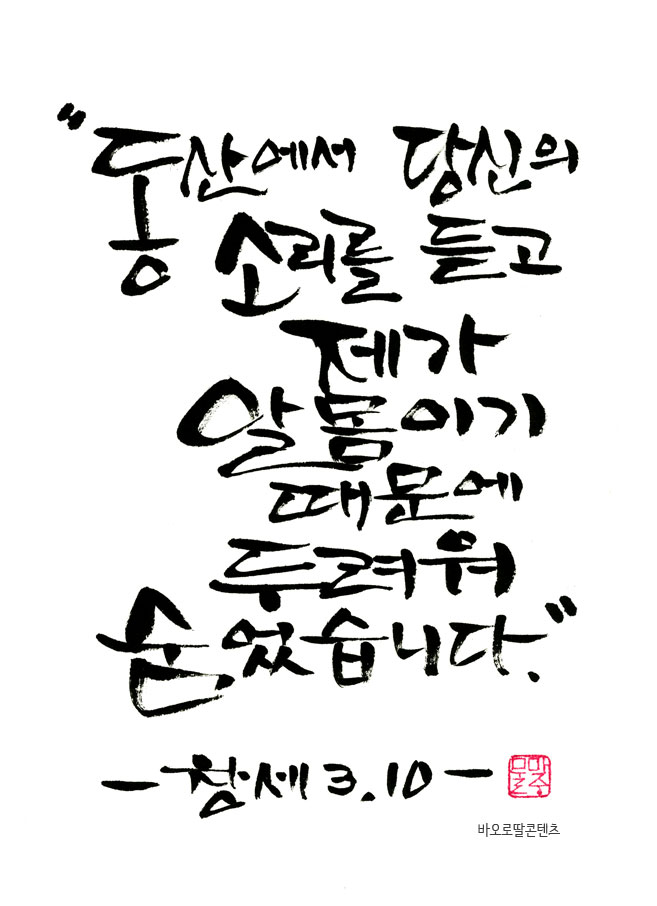 "동산에서 당신의
소리를 듣고
제가
알몸이기
때문에
두려워
숨었습니다."
- 창세 3.10 -
바오로딸콘텐츠